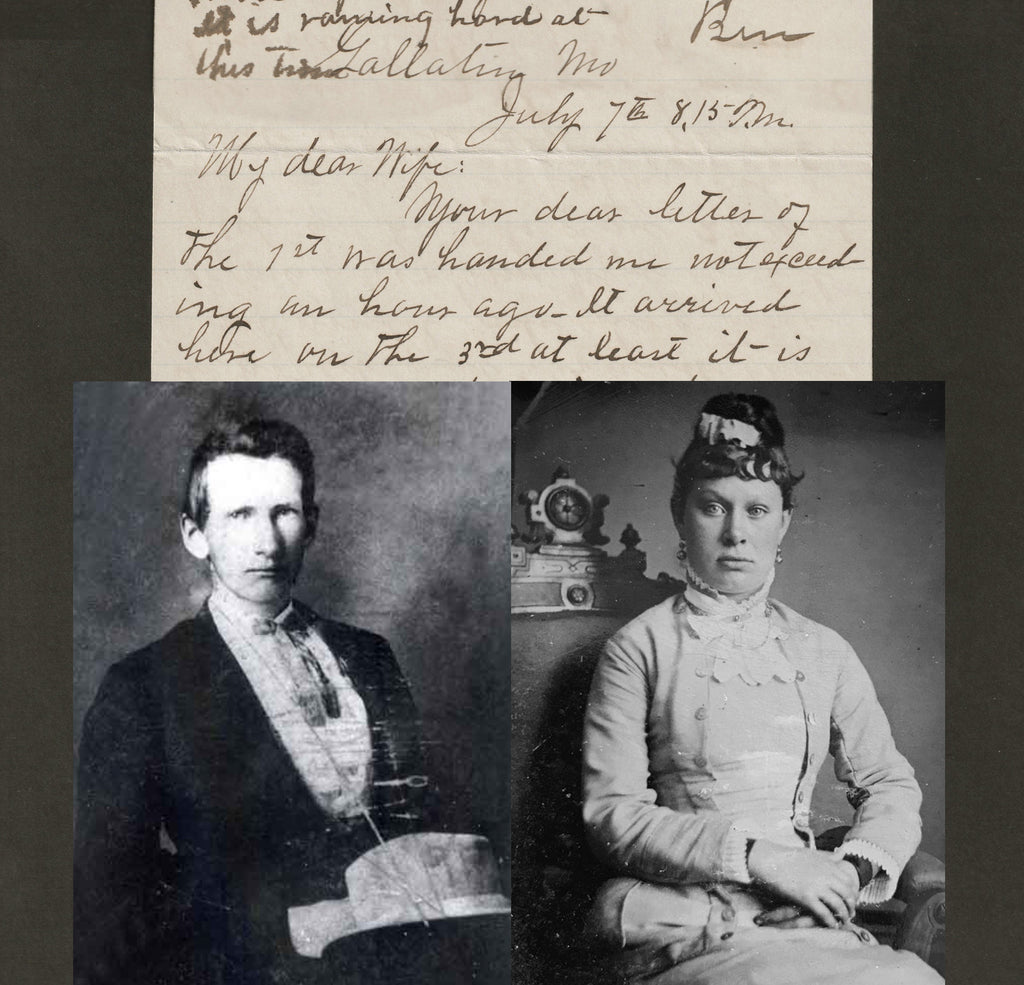 It is raining hard at
Ben
this time Gallatin Mo
July 7th 8,15 P.m.
My dear Wife:
Your dear letter of
the 1st was handed me not exceed-
ing an hour ago - It arrived
here on the 3rd at least it is